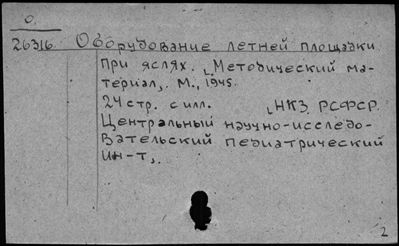 О.
26316 Оборудование летней площадки
при яслях. [Методический ма-
териал]. М., 1945.
24 стр. с илл. [НКЗ РСФСР.
Центральный научно-исследо-
вательский педиатрический
ин-т].
2